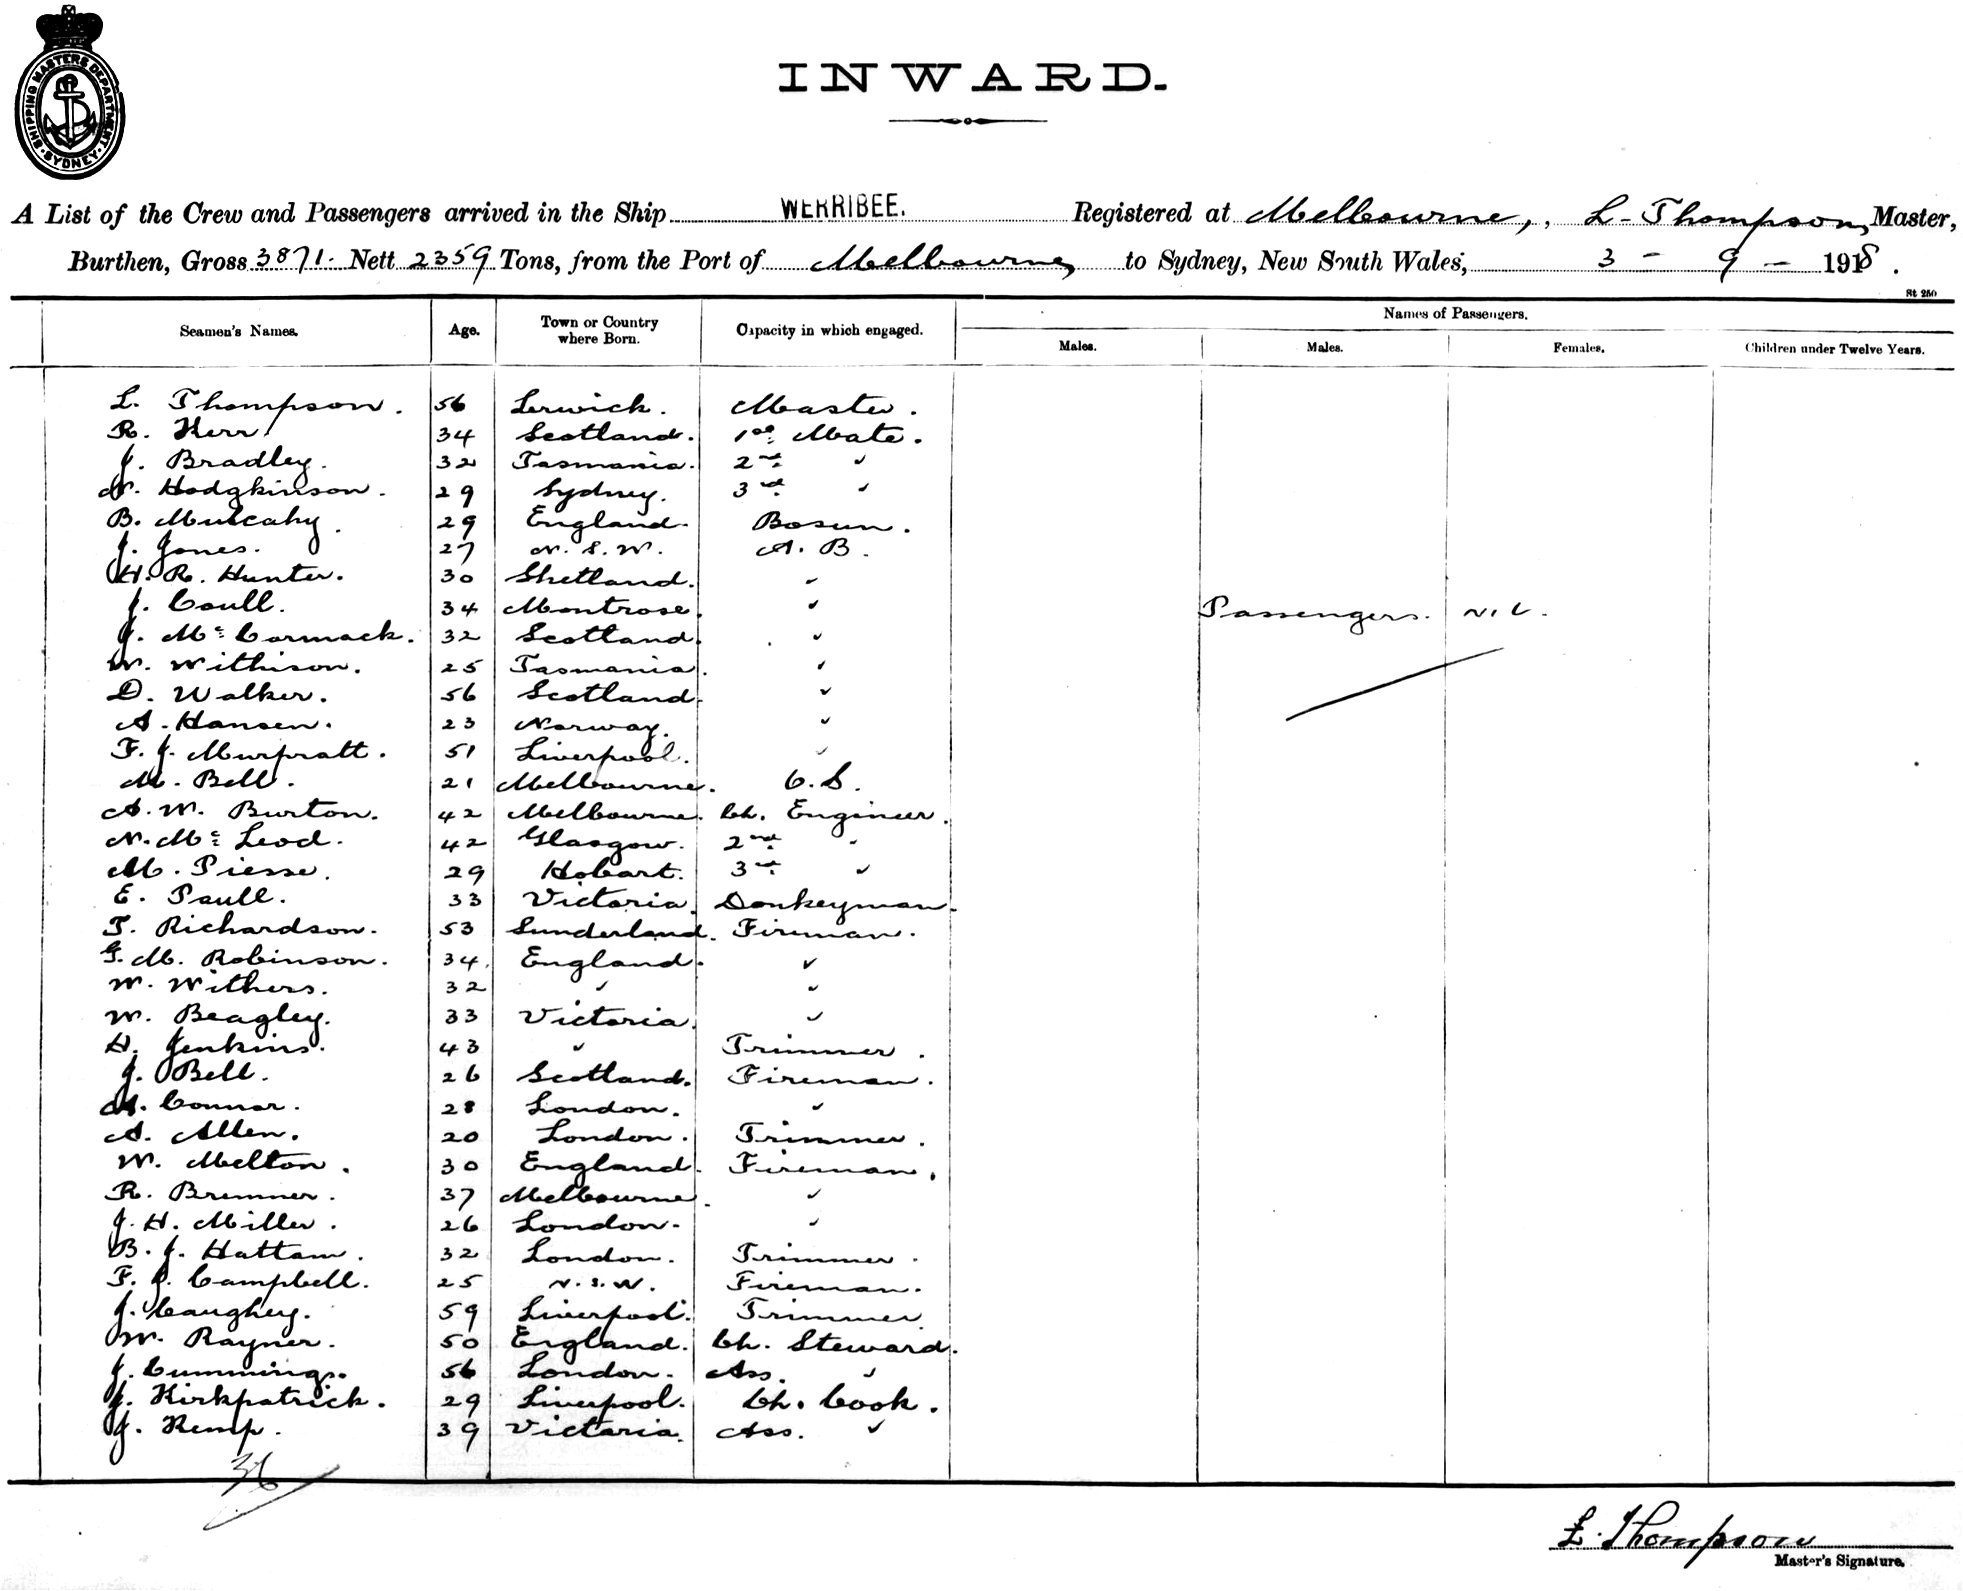 SHIPPING MASTERS DEPARTMENT SYDNEY
INWARD.
A List of the Crew and Passengers arrived in the Ship WERRIBEE. Registered at Melbourne, L. Thompson, Master,
Burthen, Gross 3871. Nett 2359 Tons, from the Port of Melbourne to Sydney, New South Wales, 3 - 9 - 1918.
St 250
Names of Passengers.
Seamen's Names. Age. Town or Country where Born. Capacity in which engaged. Males. Males. Females. Children under Twelve Years.
L. Thompson. 56 Lerwick. Master.
R. Kerr 34 Scotland. 1st Mate.
J. Bradley. 32 Tasmania. 2nd "
N. Hodgkinson. 29 Sydney. 3rd "
B. Mulcahy. 29 England. Bosun.
J. Jones. 27 N.S.W. A.B.
H. R. Hunter. 30 Shetland. "
J. Coull. 34 Montrose. " Passengers. Nil.
J. McCormack. 32 Scotland. "
W. Withison. 25 Tasmania. "
D. Walker. 56 Scotland. "
A. Hansen. 23 Norway. "
F. J. Murpratt. 51 Liverpool. "
M. Bell. 21 Melbourne. O.S.
A. W. Burton. 42 Melbourne. Ch. Engineer.
N. McLeod. 42 Glasgow. 2nd "
M. Piesse. 29 Hobart. 3rd "
E. Paull. 33 Victoria. Donkeyman.
T. Richardson. 53 Sunderland. Fireman.
G. M. Robinson. 34. England. "
W. Withers. 32 " "
W. Beagley. 33 Victoria. "
H. Jenkins. 43 " Trimmer.
J. Bell. 26 Scotland. Fireman.
A. Connor. 28 London. "
A. Allen. 20 London. Trimmer.
W. Melton. 30 England. Fireman.
R. Bremner. 37 Melbourne. "
J. H. Miller. 26 London. "
B. J. Hattam. 32 London. Trimmer.
F. J. Campbell. 25 N.S.W. Fireman.
J. Caughey. 59 Liverpool. Trimmer
W. Rayner. 50 England. Ch. Steward.
J. Cummings. 56 London. Ass. "
J. Kirkpatrick. 29 Liverpool. Ch. Cook.
J. Kemp. 39 Victoria. Ass. "
36
L. Thompson
Master's Signature.